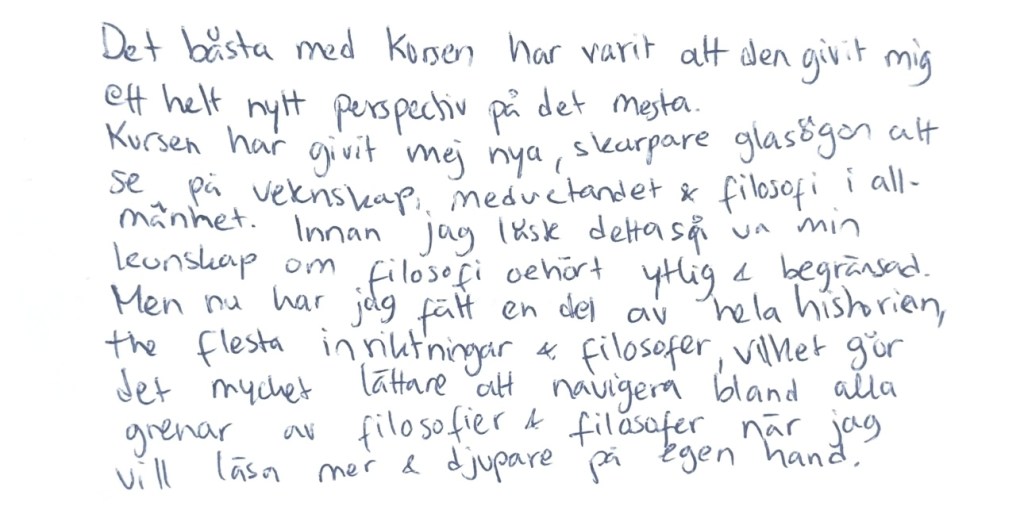 Det bästa med kursen har varit att den givit mig
ett helt nytt perspectiv på det mesta.
Kursen har givit mej nya, skarpare glasögon att
se på veknskap, medvetandet & filosofi i all-
mänhet. Innan jag läste detta så va min
kunskap om filosofi oehört ytlig & begränsad.
Men nu har jag fått en del av hela historien,
the flesta inriktningar & filosofer, vilket gör
det mycket lättare att navigera bland alla
grenar av filosofier & filosofer när jag
vill läsa mer & djupare på egen hand.